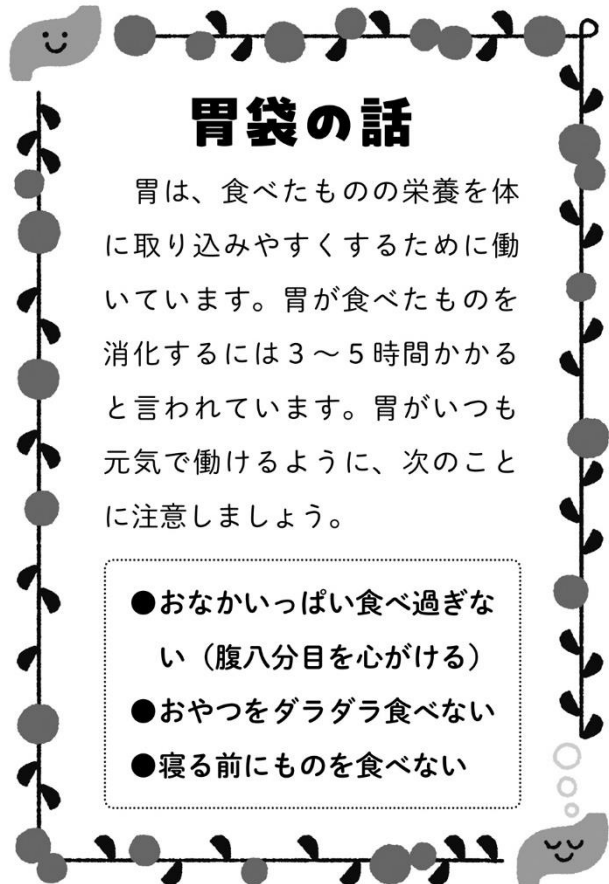 胃袋の話
　胃は、食べたものの栄養を体
に取り込みやすくするために働
いています。胃が食べたものを
消化するには３～５時間かかる
と言われています。胃がいつも
元気で働けるように、次のこと
に注意しましょう。
●おなかいっぱい食べ過ぎな
い（腹八分目を心がける）
●おやつをダラダラ食べない
●寝る前にものを食べない